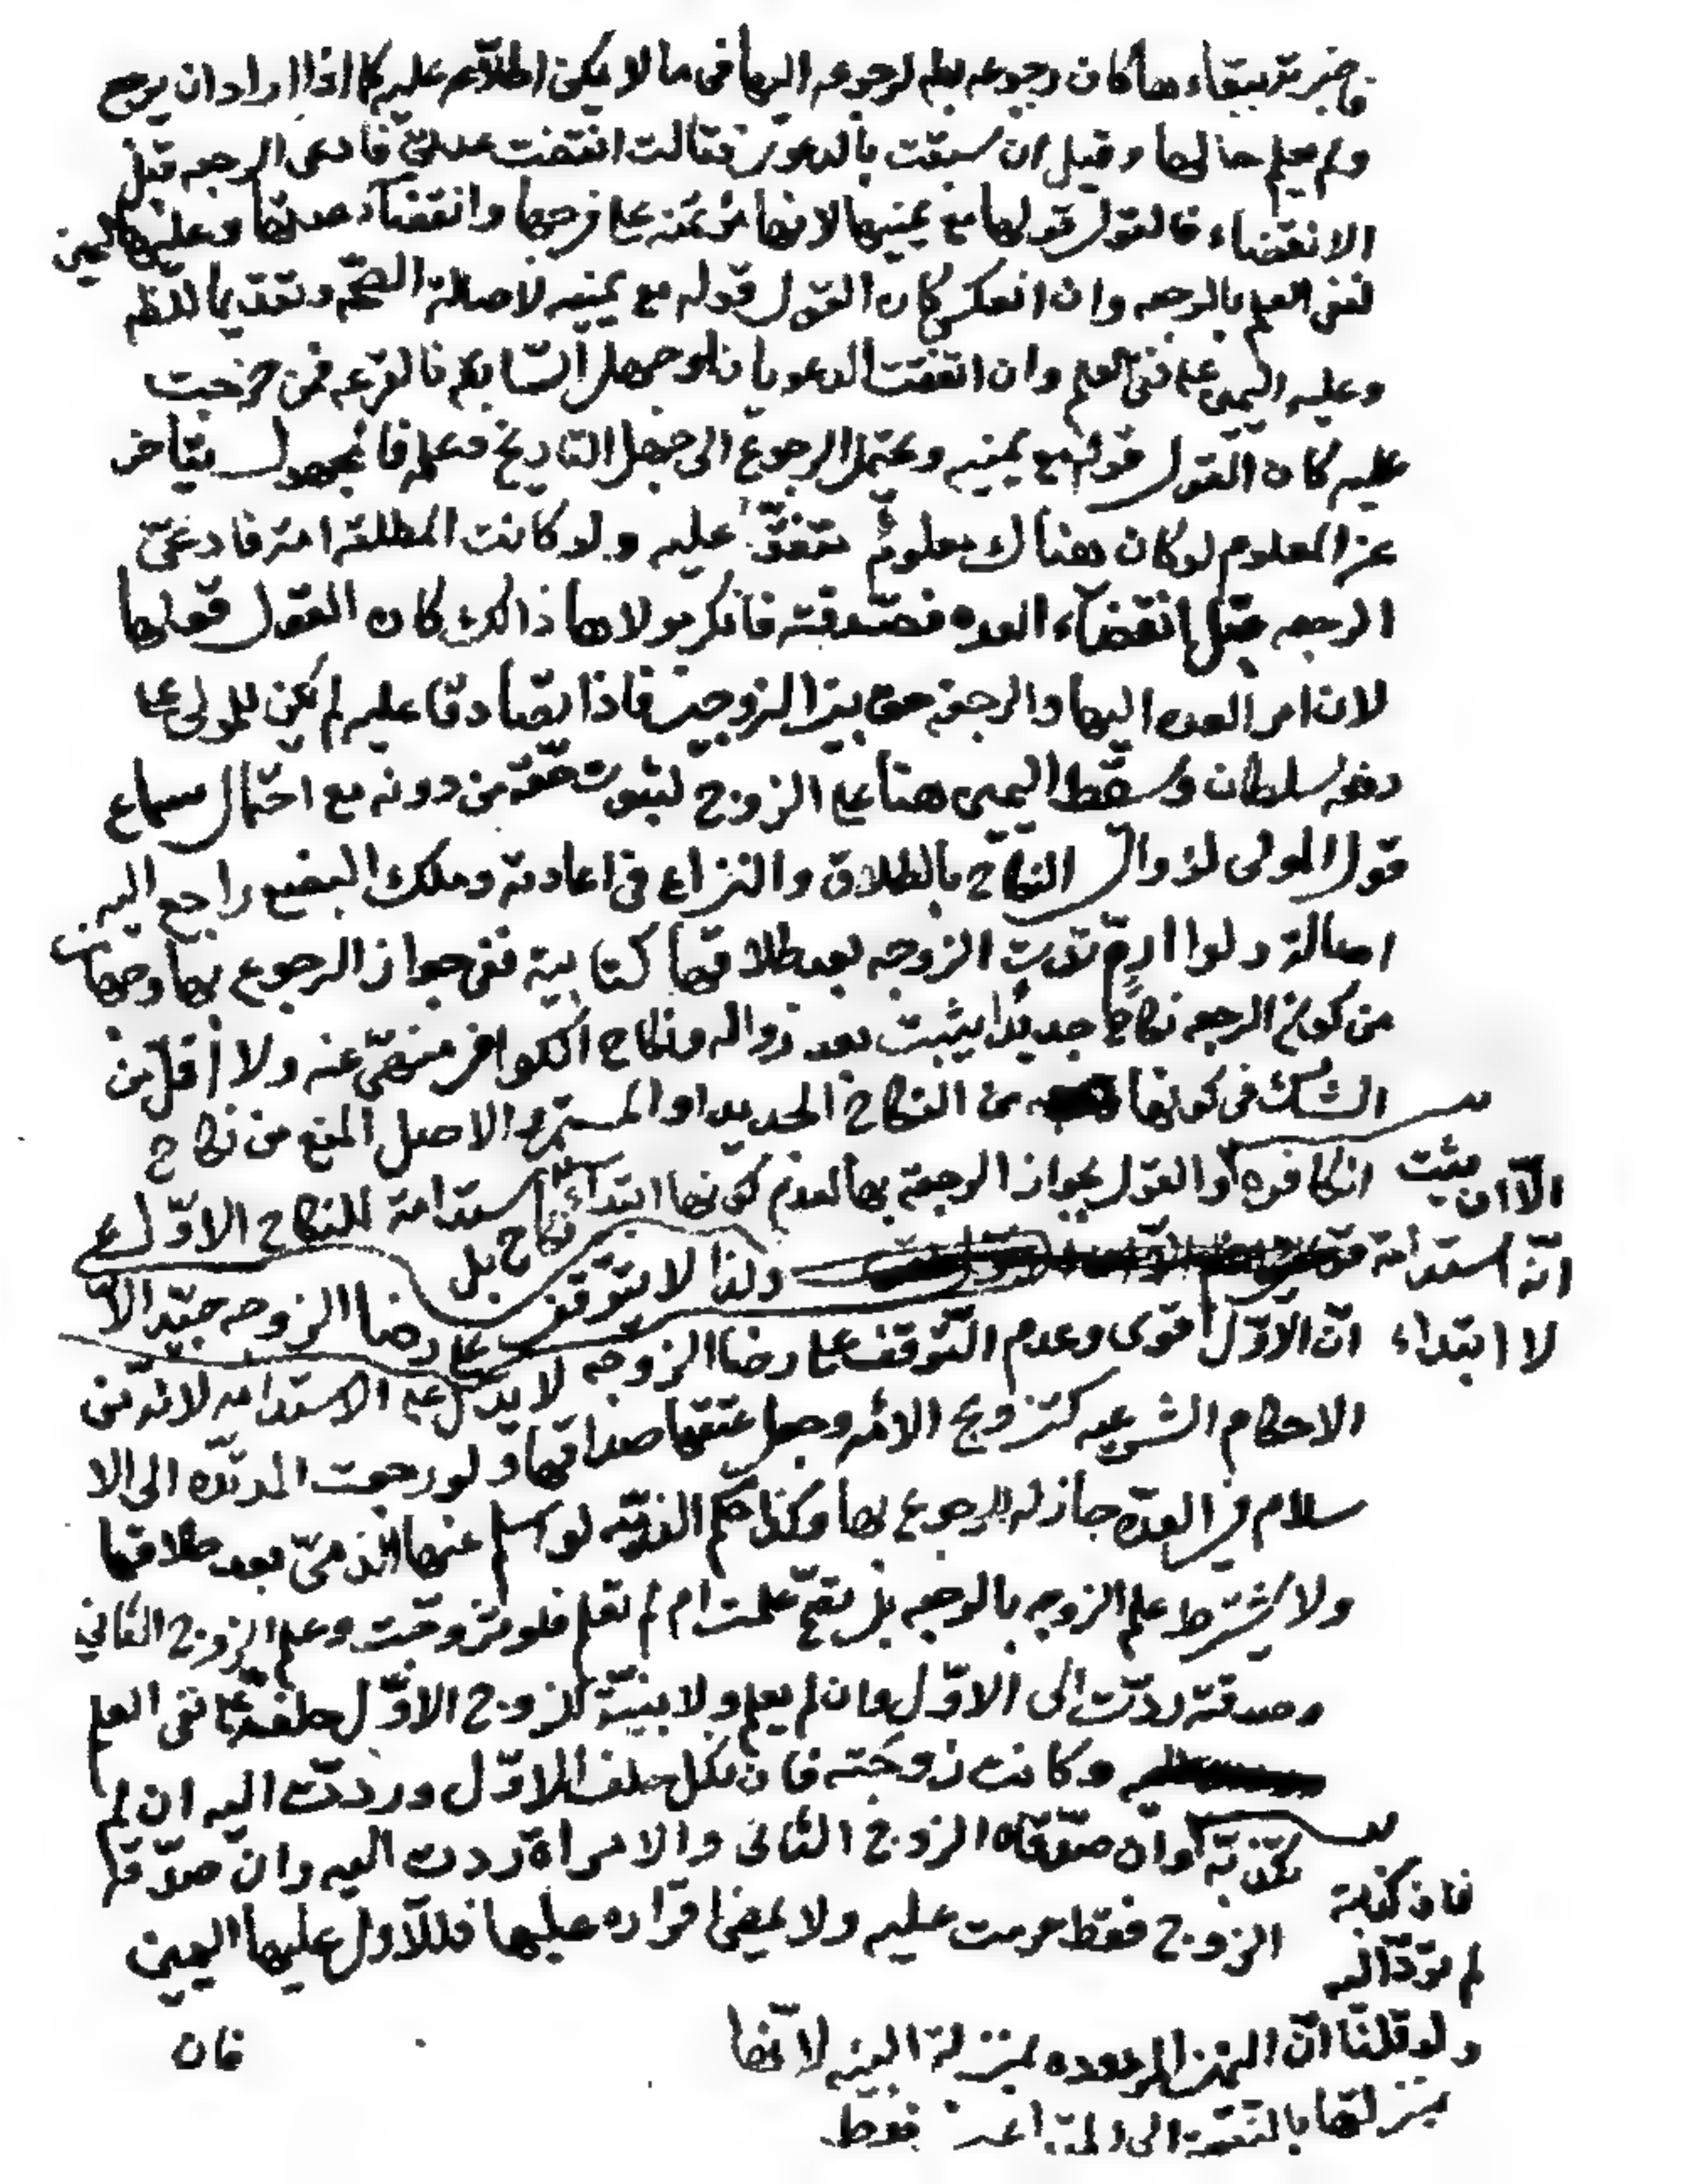 فاخبرته ببقاءها كان رجوعه اليها في ما لا يمكن اطلاعه عليه كما اذا اراد ان يرجع
ولم يعلم حالها وقيل ان سبقت بالدعوى فقالت انقضت عدتي فادعى الرجعه قبل
الانقضاء فالقول قولها مع يمينها لانها مؤتمنه على فرجها وانقضاء عدتها وعليها اليمين
لنفي العلم بالرجعه وان انعكس كان القول قوله مع يمينه لاصالة الصحّه وتقديما للظاهر
وعليه اليمين على نفي العلم وان اتفقت الدعويان او جهل السابق فالقرعه فمن خرجت
عليه كان القول قوله مع يمينه ويحتمل الرجوع الى جهل التاريخ وعلمه فالمجهول يتأخر
عن المعلوم لو كان هناك معلوم متفق عليه ولو كانت المطلقة امة فادعى
الرجعه قبل انقضاء العده فصدقته فانكر مولاها ذالك كان القول قولها
لان امر العده اليها والرجعة حق بين الزوجين فاذا تصادقا عليه لم يكن للمولى على
دفعه سلطان وسقط اليمين هنا على الزوج لثبوت حقه من دونه مع احتمال سماع
قول المولى لزوال النكاح بالطلاق والنزاع في اعادته وملك البضع راجع اليه
اصالة ولو ارتدت الزوجه بعد طلاقها كتابية ففي جواز الرجوع بها وجهان
من كون الرجعه نكاحا جديدا يثبت بعد زواله ونكاح الكوافر منهيّ عنه ولا اقل من
الشك في كونها من النكاح الجديد او المستمر والاصل المنع من نكاح
الكافره والقول بجواز الرجعة بها لعدم كونها ابتداء نكاح بل استدامة للنكاح الاوّل
الّا ان يثبت
انّه استدامة
لا ابتداء
ولذا لا يتوقف على رضا الزوجه جيّد الا
انّ الاوّل اقوى وعدم التّوقف على رضا الزوجه لا يدل على الاستدامه لانه من
الاحكام الشرعيه كتزويج الامه وجعل عتقها صداقها ولو رجعت المرتدّه الى الا
سلام في العدّه جاز له الرجوع بها وكذا حكم الذميّه لو اسلم عنها الذميّ بعد طلاقها
ولا يشترط علم الزوجه بالرجعه بل يصح علمت ام لم تعلم فلو تزوجت وعلم الزوج الثاني
وصدقته ردّت الى الاوّل وان لم يعلم ولا بيّنة للزوج الاوّل حلف على نفي العلم
وكانت زوجته فان نكل حلف الاوّل وردّت اليه ان لم
تكذبه وان صدّقاه الزوج الثاني والامراة ردت اليه وان صدّقه
فان كذبته
لم تردّ اليه
الزوج فقط حرمت عليه ولا يمضي اقراره عليها فللاول عليها اليمين
ولو قلنا انّ اليمين المردوده بمنزلة البينه لانّها
بمنزلتها بالنسبة الى المتداعيين فقط
فان